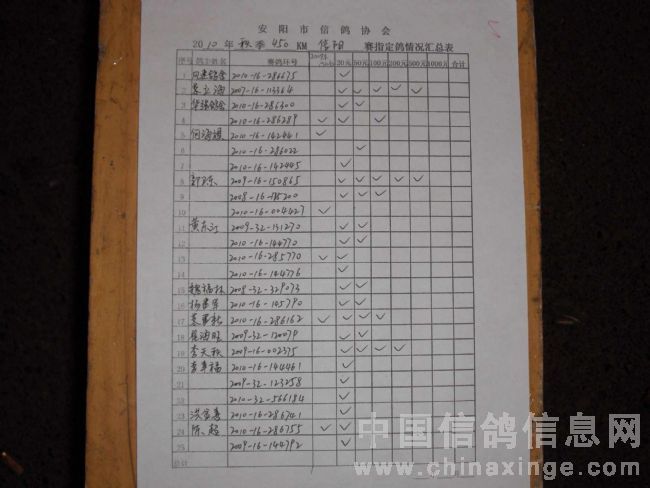 安阳市信鸽协会
2010年秋季450KM信阳 赛指定鸽情况汇总表
序号 鸽主姓名 赛鸽环号 20元 50元 100元 200元 500元 1000元 合计
1 2010-16-286675 ✓
2 2007-16-113364 ✓ ✓ ✓ ✓ ✓
3 华强鸽舍 2010-16-286300 ✓ ✓
4 2010-16-286289 ✓ ✓ ✓
5 何海根 2010-16-142441 ✓
6 2010-16-286022 ✓
7 2010-16-142445 ✓
8 2009-16-150865 ✓ ✓ ✓ ✓ ✓
9 2008-16-200 ✓ ✓ ✓
10 2010-16-004427 ✓
11 黄东江 2009-32-131270 ✓ ✓
12 2010-16-144770 ✓ ✓
13 2010-16-285770 ✓ ✓
14 2010-16-144776 ✓
15 魏福林 2008-32-329073 ✓ ✓
16 杨書军 2010-16-145790 ✓ ✓
17 2010-16-286162 ✓ ✓ ✓ ✓
18 2009-32-120079 ✓ ✓
19 李天秋 2009-16-002375 ✓ ✓ ✓ ✓
20 李幸福 2010-16-144461 ✓
21 2009-32-123258 ✓
22 2010-32-566184 ✓
23 洪富喜 2010-16-286741 ✓
24 陈超 2010-16-286755 ✓ ✓ ✓
25 2009-16-144792 ✓
合计
中国信鸽信息网
www.chinaxinge.com